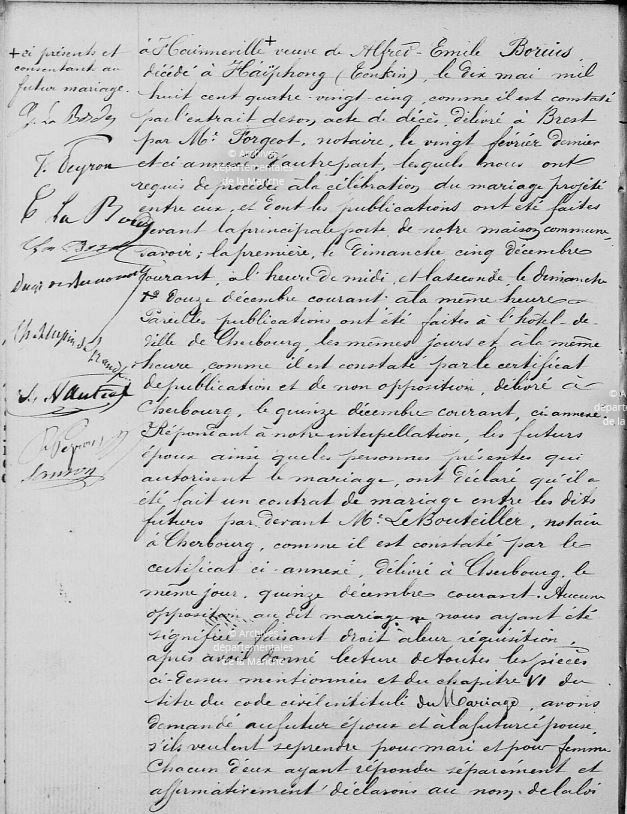 + ci présents et
consentant au
futur mariage.
à Hainneville + veuve de Alfred-Emile Borius
décédé à Haïphong (Tonkin), le dix mai mil
huit cent quatre-vingt-cinq, comme il est constaté
par l'extrait de son acte de décès, délivré à Brest
par Me Forgeot, notaire, le vingt février dernier
et ci annexé, d'autre part, lesquels nous ont
requis de procéder à la célébration du mariage projeté
entre eux, et dont les publications ont été faites
devant la principale porte de notre maison commune,
savoir; la première, le dimanche cinq décembre
courant, à l'heure de midi, et la seconde le dimanche
douze décembre courant à la même heure
Pareilles publications ont été faites à l'hôtel-de-
ville de Cherbourg les mêmes jours et à la même
heure, comme il est constaté par le certificat
de publication et de non opposition, délivré à
Cherbourg, le quinze décembre courant, ci annexé.
Répondant à notre interpellation, les futurs
époux ainsi que les personnes présentes qui
autorisent le mariage, ont déclaré qu'il a
été fait un contrat de mariage entre les dits
futurs par devant Me Le Bouteiller, notaire
à Cherbourg, comme il est constaté par le
certificat ci-annexé, délivré à Cherbourg, le
même jour, quinze décembre courant. Aucune
opposition au dit mariage ne nous ayant été
signifiée, faisant droit à leur réquisition,
après avoir donné lecture de toutes les pièces
ci-dessus mentionnées et du chapitre VI du
titre du code civil intitulé du Mariage, avons
demandé au futur époux et à la future épouse,
s'ils veulent se prendre pour mari et pour femme
Chacun d'eux ayant répondu séparément et
affirmativement déclarons au nom de la loi
F. Peyron
L. Nanteuil
© Archives
départementales
de la Manche
© Archives
départementales
de la Manche
© A
départe
de la